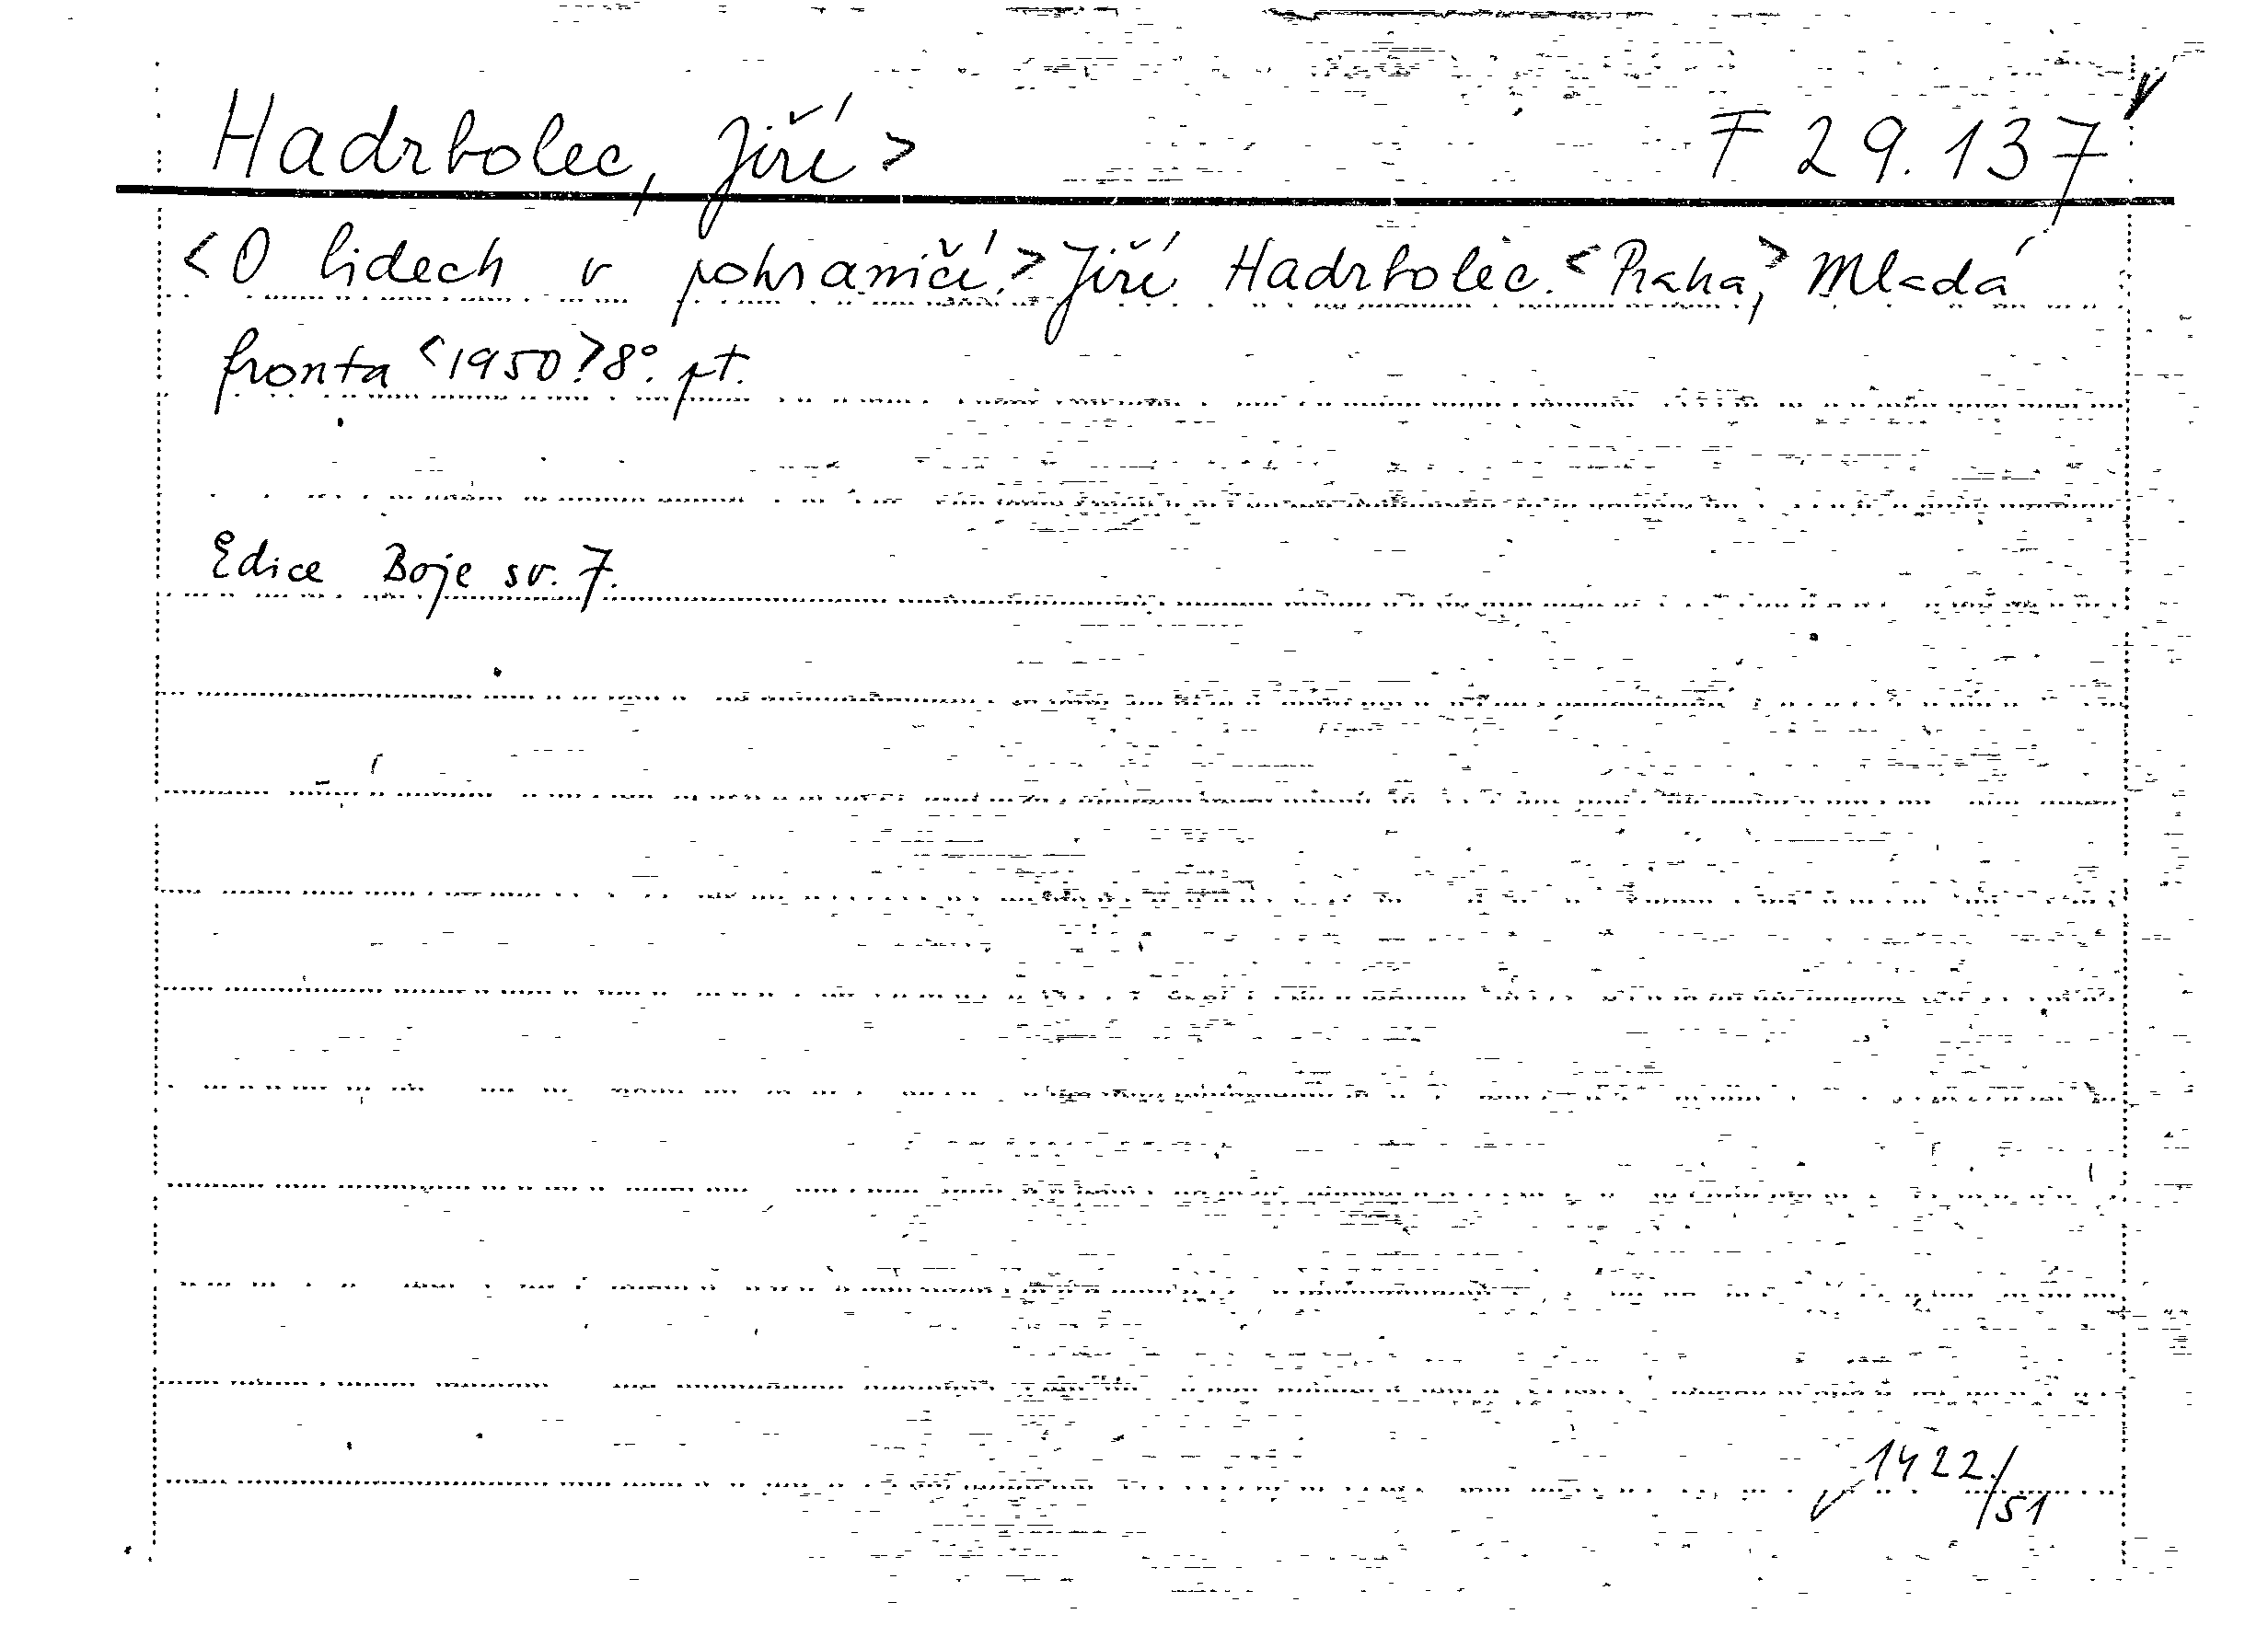 Hadrbolec, Jiří > F 29.137
<O lidech v pohraničí.> Jiří Hadrbolec. <Praha,> Mladá
fronta <1950>. 8°. pt.
Edice Boje sv. 7.
1422/51